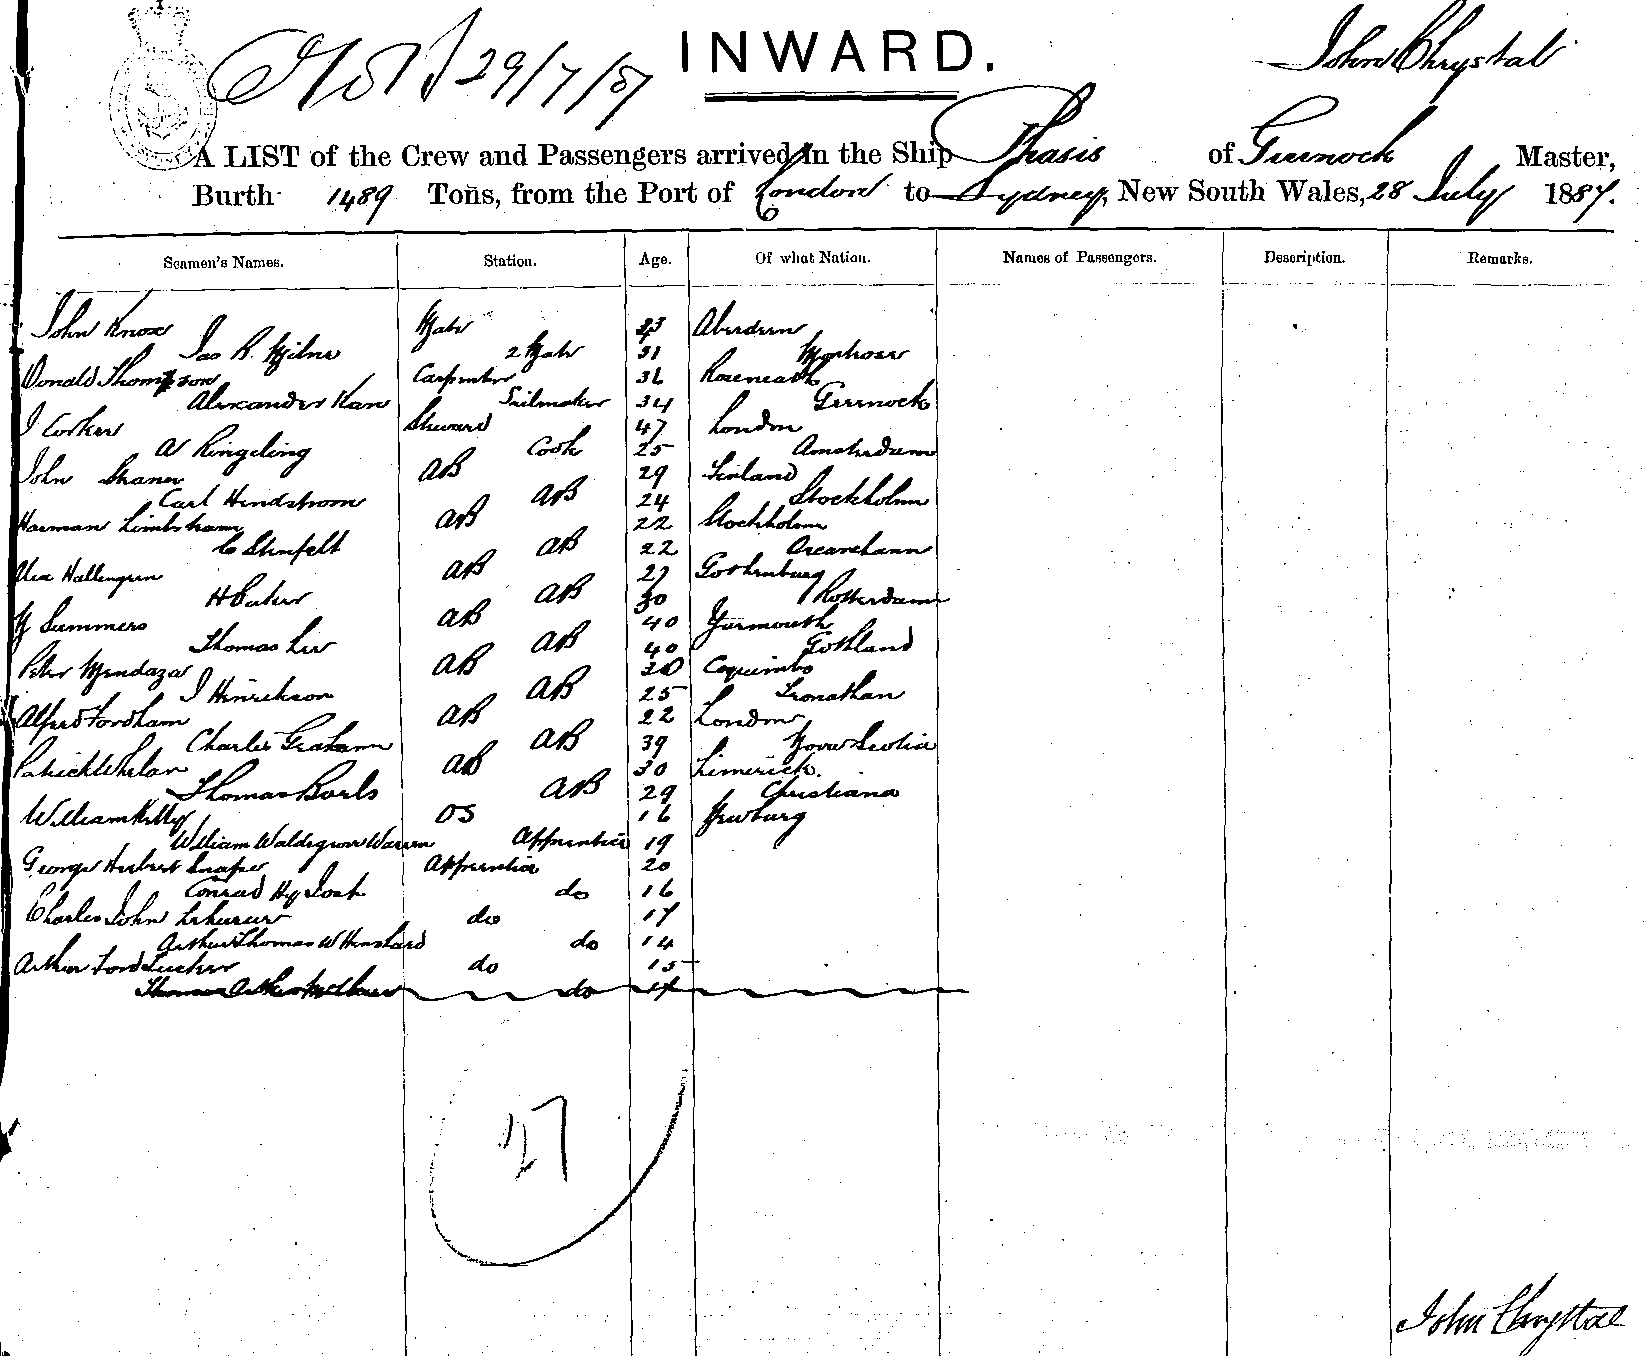 29/7/87 INWARD. John Chrystal
A LIST of the Crew and Passengers arrived in the Ship Phasis of Greenock Master,
Burth 1489 Tons, from the Port of London to Sydney, New South Wales, 28 July 1887.
Seamen's Names. Station. Age. Of what Nation. Names of Passengers. Description. Remarks.
John Knox Mate Aberdeen
Jas R. Milne 2 Mate 31 Montrose
Donald Thompson Carpenter 36 Roseneath
Alexander Kan Sailmaker 34 Greenock
J Corker Steward 47 London
A Ringeling Cook 25 Amsterdam
John AB 29 Finland
Carl Hendstrom AB 24 Stockholm
Harman AB 22 Stockholm
C Stenfelt AB 22
Alex Hallengren AB 27 Gothenburg
H Baker AB 30 Rotterdam
Summers AB 40 Yarmouth
Thomas Lee AB 40 Gothland
Peter Mendaza AB 30 Coquimbo
J Henrikson AB 25
Alfred Fordham AB 22 London
Charles Graham AB 39 Nova Scotia
Patrick Whelan AB 30 Limerick.
Thomas AB 29 Christiana
William Kelly OS 16 Newburg
William Waldegrave Warren Apprentice 19
George Herbert Apprentice 20
Conrad Hy do 16
Charles John do 17
Arthur Thomas W do 14
Arthur Ford Tucker do 15
Thomas do 17
27
John Chrystal